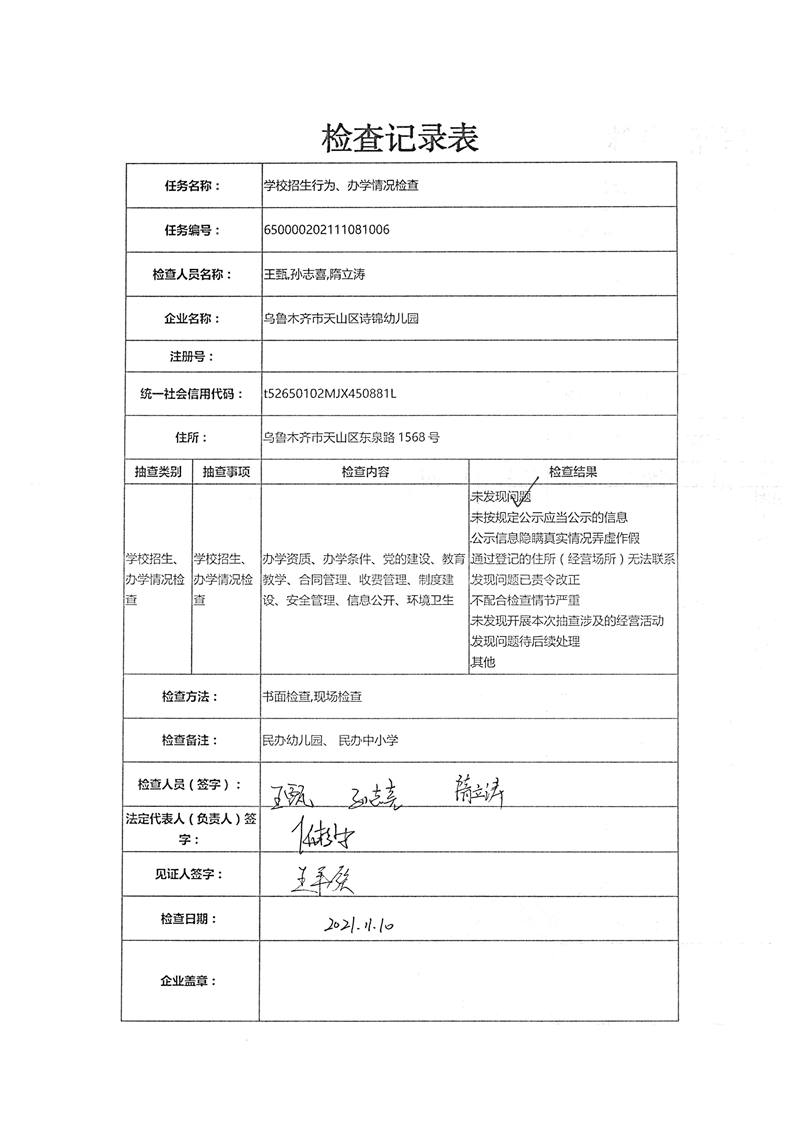 检查记录表
任务名称： 学校招生行为、办学情况检查
任务编号： 650000202111081006
检查人员名称： 王甄,孙志喜,隋立涛
企业名称： 乌鲁木齐市天山区诗锦幼儿园
注册号：
统一社会信用代码： t52650102MJX450881L
住所： 乌鲁木齐市天山区东泉路 1568 号
抽查类别 抽查事项 检查内容 检查结果
学校招生、
办学情况检
查
学校招生、
办学情况检
查
办学资质、办学条件、党的建设、教育
教学、合同管理、收费管理、制度建
设、安全管理、信息公开、环境卫生
未发现问题
未按规定公示应当公示的信息
公示信息隐瞒真实情况弄虚作假
通过登记的住所（经营场所）无法联系
发现问题已责令改正
不配合检查情节严重
未发现开展本次抽查涉及的经营活动
发现问题待后续处理
其他
检查方法： 书面检查,现场检查
检查备注： 民办幼儿园、 民办中小学
检查人员（签字）： 王甄 孙志喜 隋立涛
法定代表人（负责人）签
字：
见证人签字：
检查日期： 2021.11.10
企业盖章：